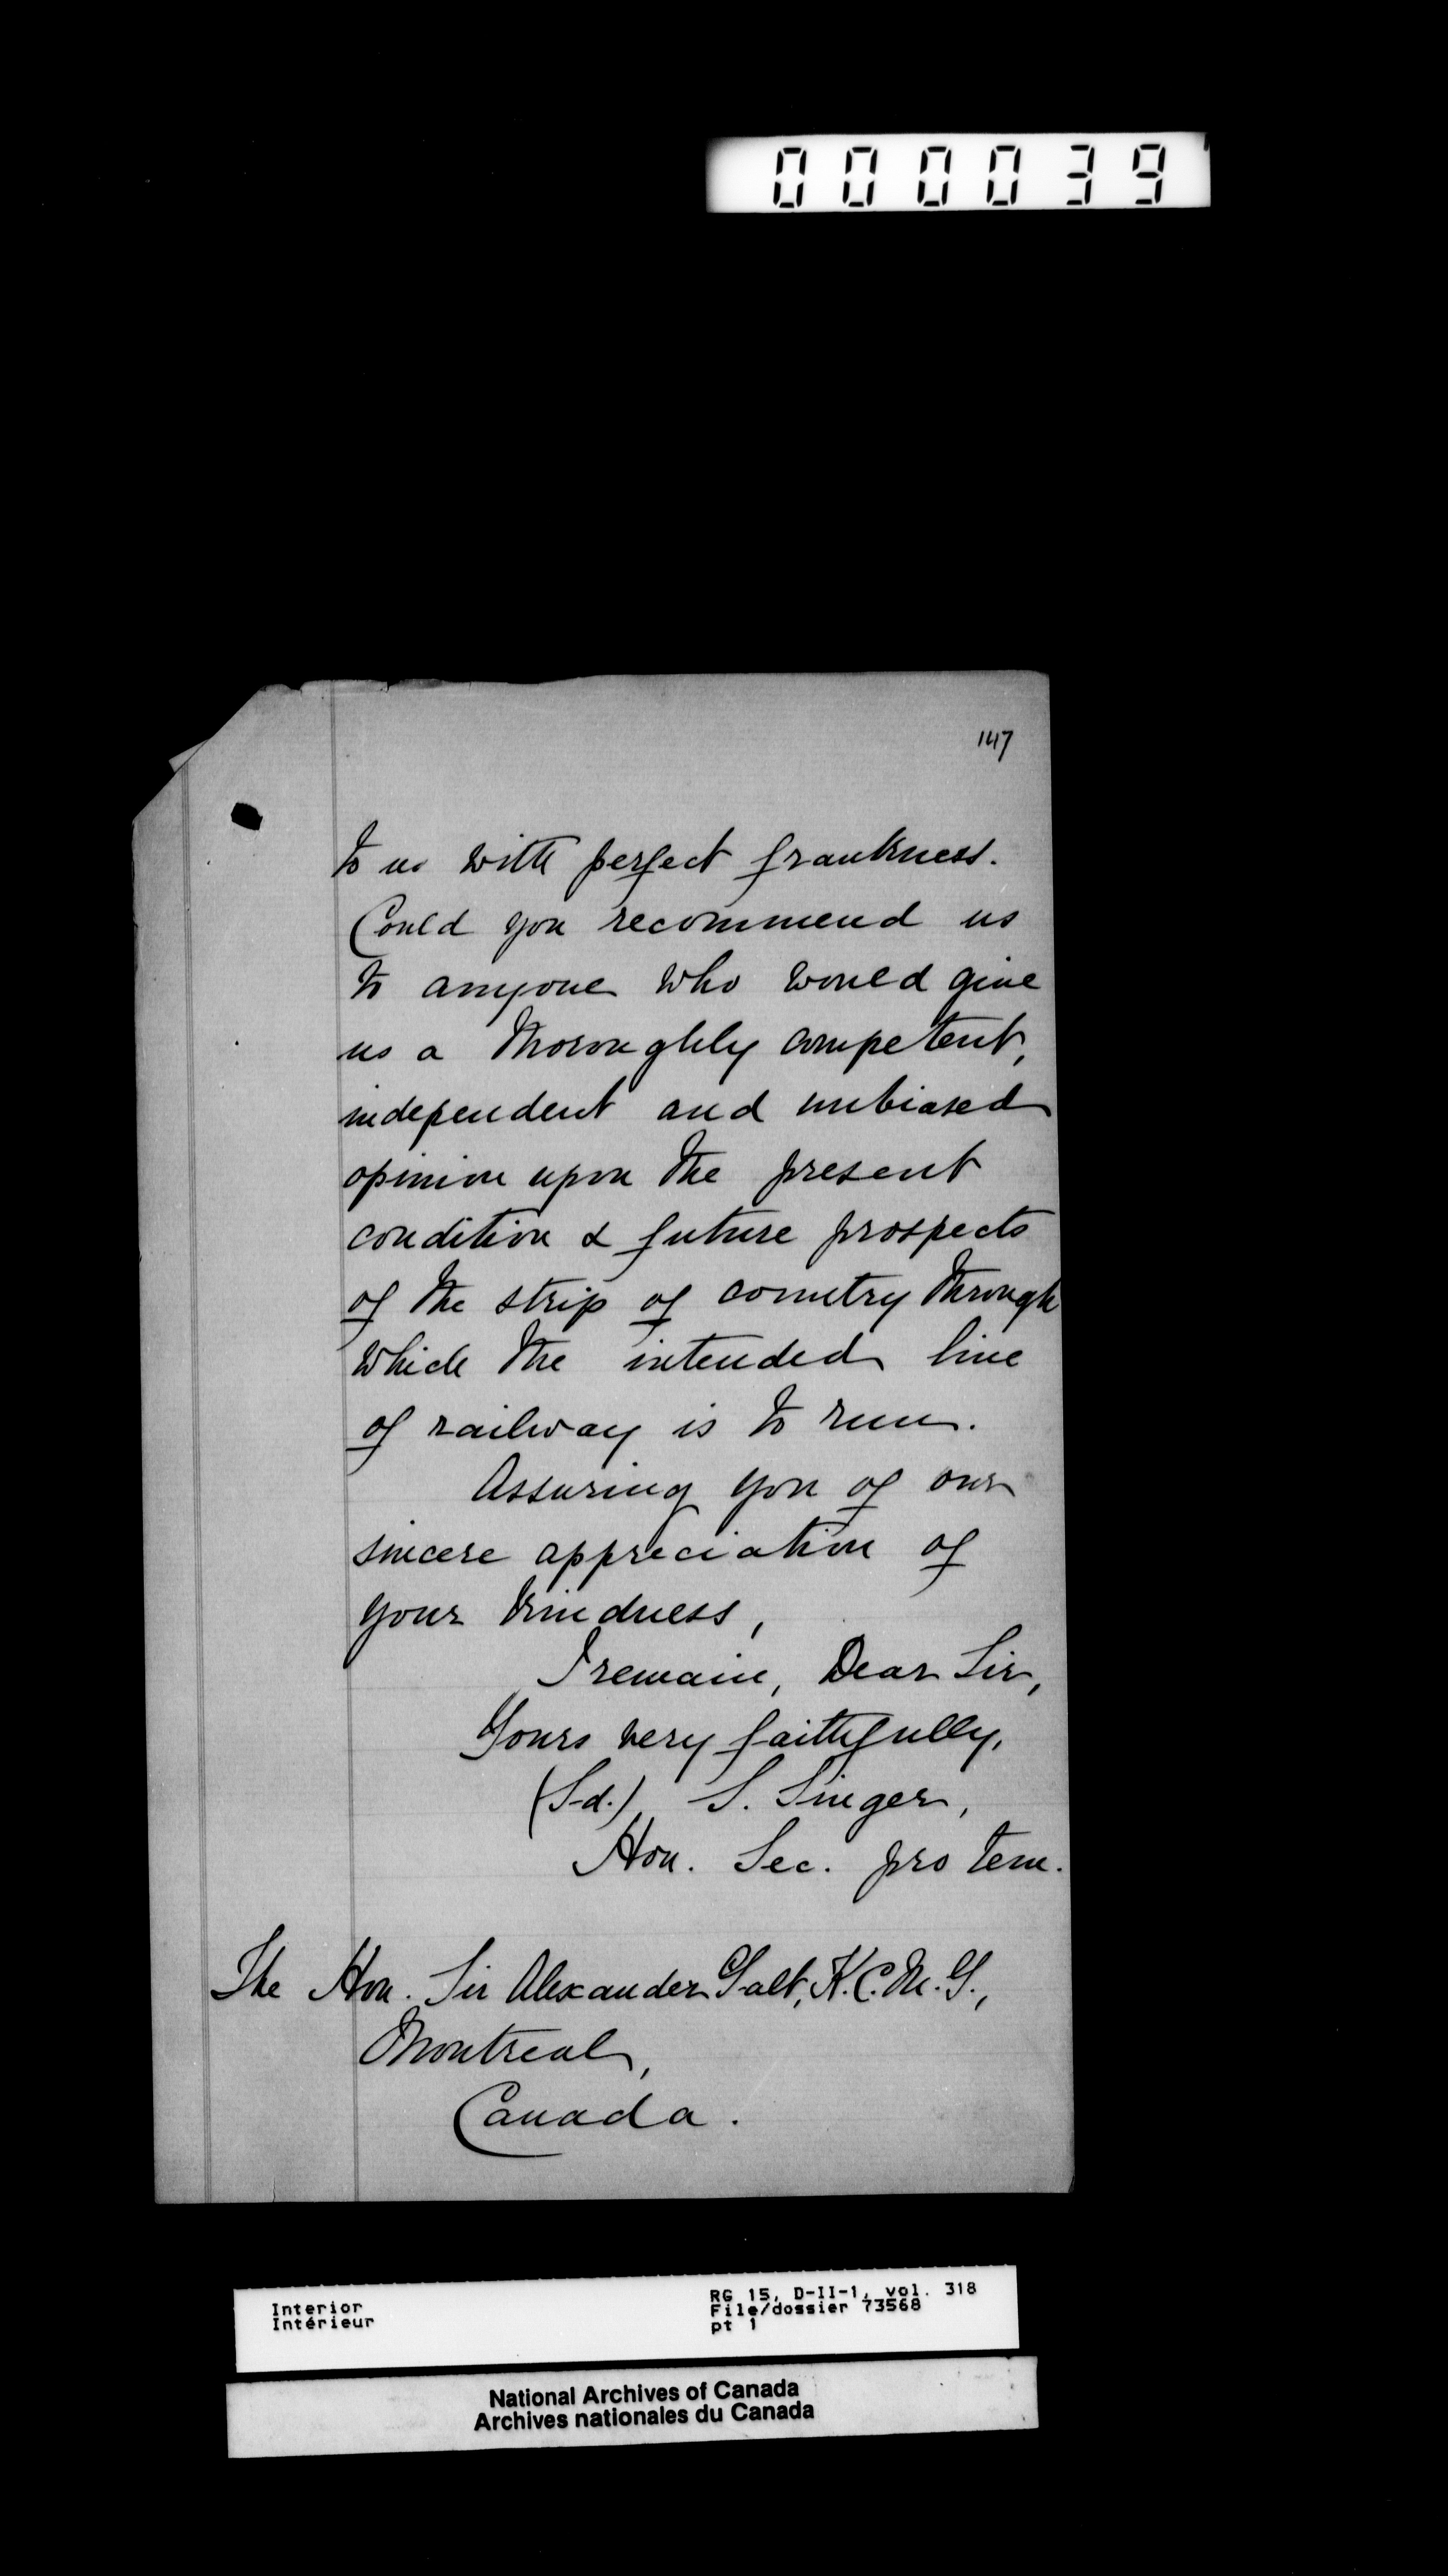 000039
147
to us with perfect frankness.
Could you recommend us
to anyone who would give
us a thoroughly competent,
independent and unbiased
opinion upon the present
condition & future prospects
of the strip of country through
which the intended line
of railway is to run.
Assuring you of our
sincere appreciation of
your kindness,
I remain, Dear Sir,
Yours very faithfully,
(Sd.) S. Singer,
Hon. Sec. pro tem.
The Hon. Sir Alexander Galt, K.C.M.G.,
Montreal,
Canada.
Interior
Intérieur
RG 15, D-II-1, vol. 318
File/dossier 73568
pt 1
National Archives of Canada
Archives nationales du Canada